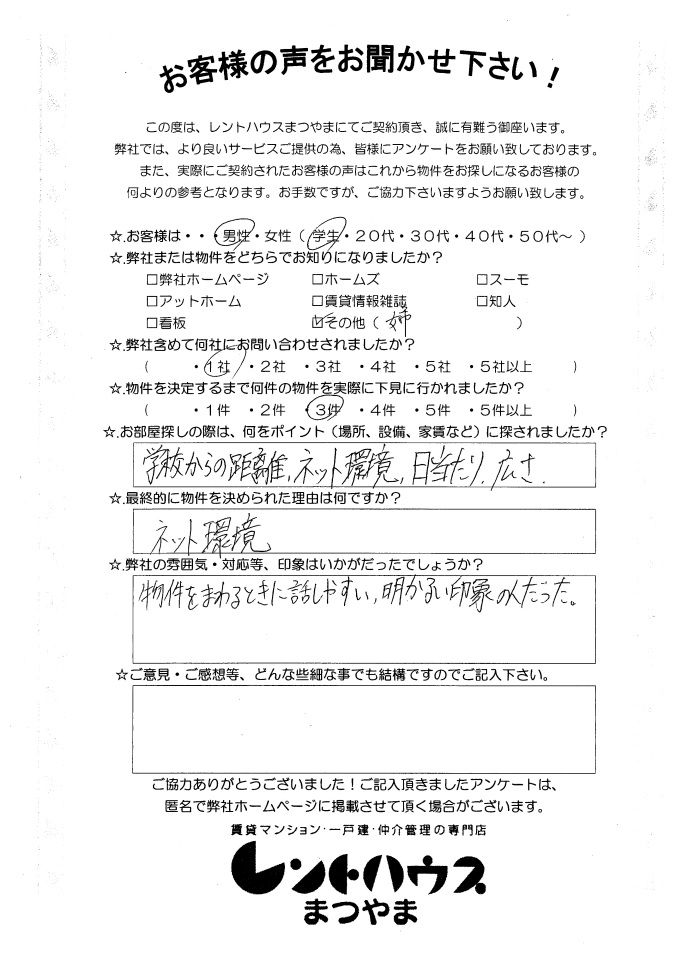 お客様の声をお聞かせ下さい！
この度は、レントハウスまつやまにてご契約頂き、誠に有難う御座います。
弊社では、より良いサービスご提供の為、皆様にアンケートをお願い致しております。
また、実際にご契約されたお客様の声はこれから物件をお探しになるお客様の
何よりの参考となります。お手数ですが、ご協力下さいますようお願い致します。
☆.お客様は・・・男性・女性（ 学生・２０代・３０代・４０代・５０代～ ）
☆.弊社または物件をどちらでお知りになりましたか？
□弊社ホームページ □ホームズ □スーモ
□アットホーム □賃貸情報雑誌 □知人
□看板 ☑その他（ 姉 ）
☆.弊社含めて何社にお問い合わせされましたか？
（ ・１社 ・２社 ・３社 ・４社 ・５社 ・５社以上 ）
☆.物件を決定するまで何件の物件を実際に下見に行かれましたか？
（ ・１件 ・２件 ・３件 ・４件 ・５件 ・５件以上 ）
☆.お部屋探しの際は、何をポイント（場所、設備、家賃など）に探されましたか？
学校からの距離、ネット環境、日当たり、広さ、
☆.最終的に物件を決められた理由は何ですか？
ネット環境
☆.弊社の雰囲気・対応等、印象はいかがだったでしょうか？
物件をまわるときに話しやすい、明かるい印象の人だった。
☆ご意見・ご感想等、どんな些細な事でも結構ですのでご記入下さい。
ご協力ありがとうございました！ご記入頂きましたアンケートは、
匿名で弊社ホームページに掲載させて頂く場合がございます。
賃貸マンション・一戸建・仲介管理の専門店
レントハウス
まつやま